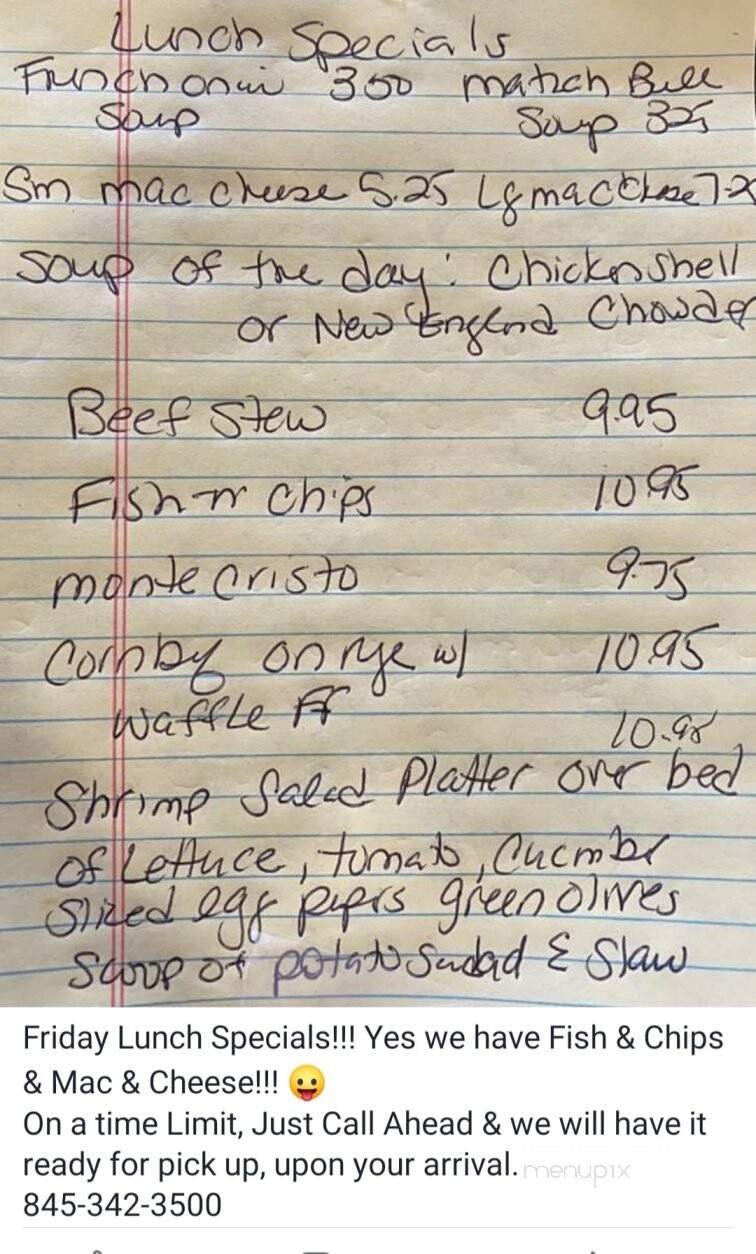 Lunch Specials
Frunch onin 350 match Bull
Soup Soup 325
Sm mac cheese 5.25 Lg mac Chese 7.2
Soup of the day: Chicken Shell
or New England Chowder
Beef Stew 9.95
Fish n chips 10.95
monte Cristo 9.75
Corn by on rye w/ 10.95
waffle FF
10.95
Shrimp Salad Platter over bed
of Lettuce, tomato, Cucmbr
Sliced egg pepers green olives
Scoop of potato Salad & Slaw
Friday Lunch Specials!!! Yes we have Fish & Chips
& Mac & Cheese!!! 😛
On a time Limit, Just Call Ahead & we will have it
ready for pick up, upon your arrival.
menupix
845-342-3500